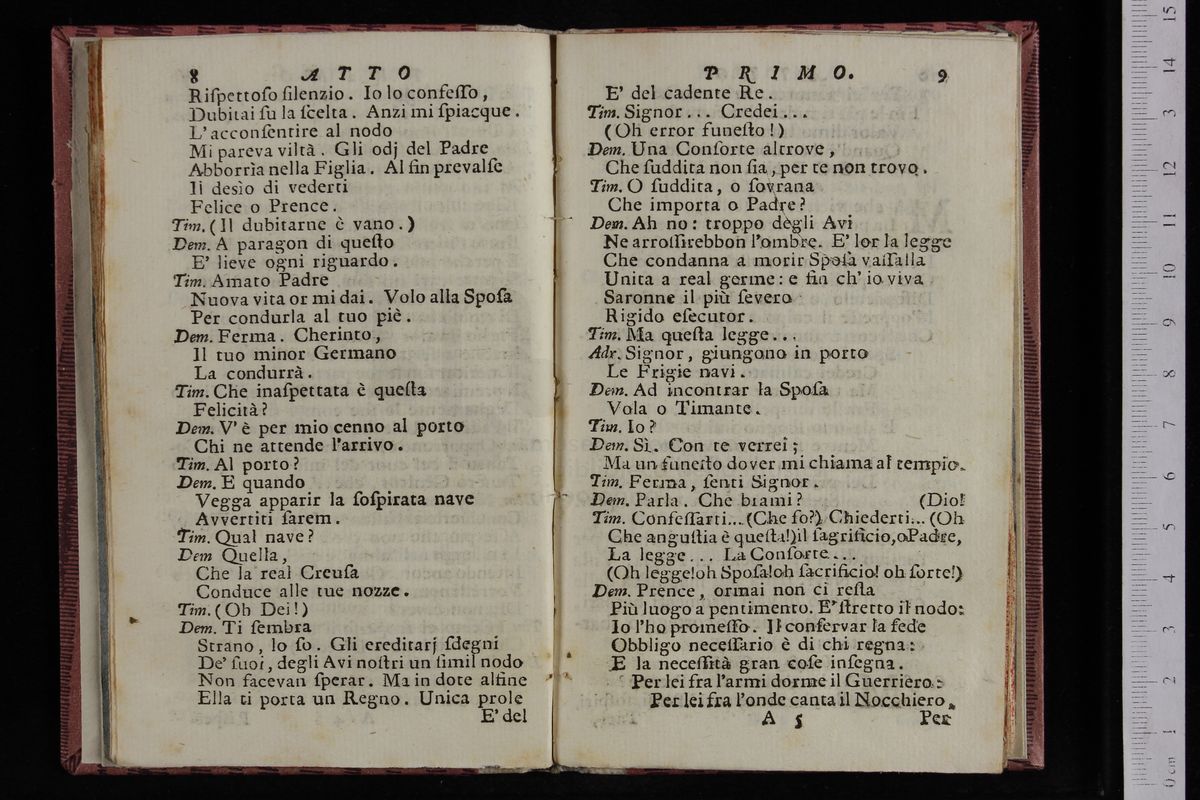 8 ATTO
Riſpettoſo ſilenzio. Io lo confeſſo,
Dubitai ſu la ſcelta. Anzi mi ſpiacque.
L'acconſentire al nodo
Mi pareva viltà. Gli odj del Padre
Abborrìa nella Figlia. Al fin prevalſe
Il desìo di vederti
Felice o Prence.
Tim. (Il dubitarne è vano.)
Dem. A paragon di queſto
E' lieve ogni riguardo.
Tim. Amato Padre
Nuova vita or mi dai. Volo alla Spoſa
Per condurla al tuo piè.
Dem. Ferma. Cherinto,
Il tuo minor Germano
La condurrà.
Tim. Che inaſpettata è queſta
Felicità?
Dem. V'è per mio cenno al porto
Chi ne attende l'arrivo.
Tim. Al porto?
Dem. E quando
Vegga apparir la ſoſpirata nave
Avvertiti ſarem.
Tim. Qual nave?
Dem Quella,
Che la real Creuſa
Conduce alle tue nozze.
Tim. (Oh Dei!)
Dem. Ti ſembra
Strano, lo ſo. Gli ereditarj ſdegni
De' ſuoi, degli Avi noſtri un ſimil nodo
Non facevan ſperar. Ma in dote alfine
Ella ti porta un Regno. Unica prole
E' del
PRIMO. 9
E' del cadente Re.
Tim. Signor... Credei...
(Oh error funeſto!)
Dem. Una Conſorte altrove,
Che ſuddita non ſia, per te non trovo.
Tim. O ſuddita, o ſovrana
Che importa o Padre?
Dem. Ah no: troppo degli Avi
Ne arroſſirebbon l'ombre. E' lor la legge
Che condanna a morir Spoſa vaſſalla
Unita a real germe: e fin ch'io viva
Saronne il più ſevero
Rigido eſecutor.
Tim. Ma queſta legge...
Adr. Signor, giungono in porto
Le Frigie navi.
Dem. Ad incontrar la Spoſa
Vola o Timante.
Tim. Io?
Dem. Sì. Con te verrei;
Ma un funeſto dover mi chiama al tempio.
Tim. Ferma, ſenti Signor.
Dem. Parla. Che brami? (Dio!
Tim. Confeſſarti... (Che fo?) Chiederti... (Oh
Che anguſtia è queſta!) il ſagrificio, o Padre,
La legge... La Conſorte...
(Oh legge! oh Spoſa! oh ſacrificio! oh ſorte!)
Dem. Prence, ormai non ci reſta
Più luogo a pentimento. E' ſtretto il nodo:
Io l'ho promeſſo. Il conſervar la fede
Obbligo neceſſario è di chi regna:
E la neceſſità gran coſe inſegna.
Per lei fra l'armi dorme il Guerriero:
Per lei fra l'onde canta il Nocchiero,
A 5 Per
0 cm 1 2 3 4 5 6 7 8 9 10 11 12 13 14 15